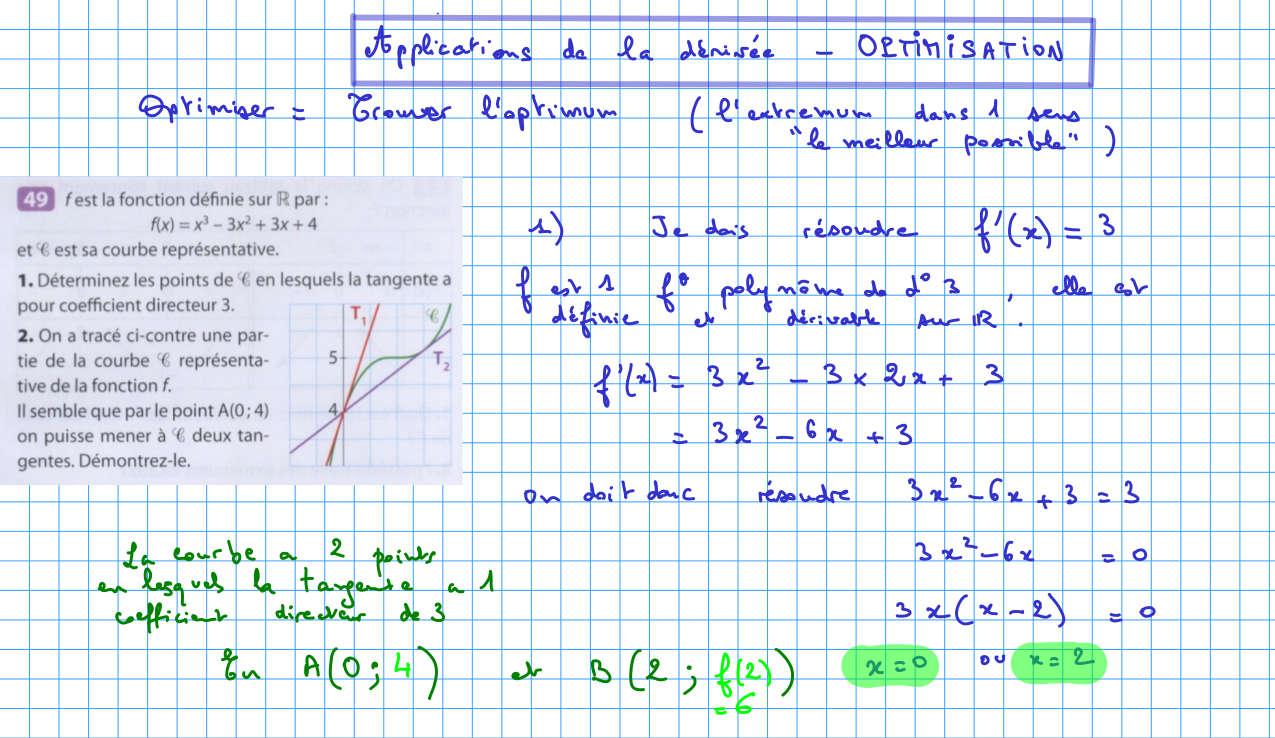 Applications de la dérivée - OPTIMISATION
Optimiser = Trouver l'optimum (l'extremum dans 1 sens
"le meilleur possible")
49 f est la fonction définie sur ℝ par :
f(x) = x³ – 3x² + 3x + 4
et 𝒞 est sa courbe représentative.
1. Déterminez les points de 𝒞 en lesquels la tangente a
pour coefficient directeur 3.
2. On a tracé ci-contre une par-
tie de la courbe 𝒞 représenta-
tive de la fonction f.
Il semble que par le point A(0 ; 4)
on puisse mener à 𝒞 deux tan-
gentes. Démontrez-le.
T₁
𝒞
5
T₂
4
1) Je dois résoudre f'(x) = 3
f est 1 f° polynôme de d° 3, elle est
définie et dérivable sur ℝ.
f'(x) = 3x² - 3 × 2x + 3
= 3x² - 6x + 3
on doit donc résoudre 3x² - 6x + 3 = 3
3x² - 6x = 0
3x(x - 2) = 0
x = 0 ou x = 2
La courbe a 2 points
en lesquels la tangente a 1
coefficient directeur de 3
En A(0 ; 4) et B(2 ; f(2))
= 6